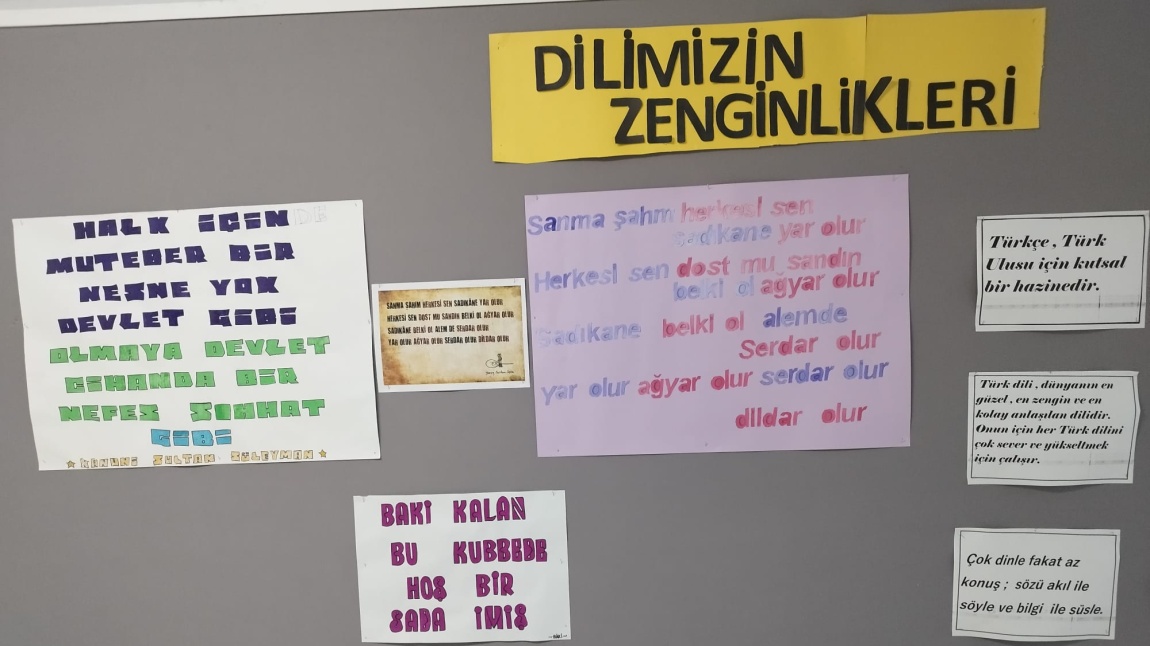 DİLİMİZİN
ZENGİNLİKLERİ
HALK İÇİN
MUTEBER BİR
NESNE YOK
DEVLET GİBİ
OLMAYA DEVLET
CİHANDA BİR
NEFES SIHHAT
GİBİ
KANUNİ SULTAN SÜLEYMAN
SANMA ŞAHIM HERKESİ SEN SADIKÂNE YAR OLUR
HERKESİ SEN DOST MU SANDIN BELKİ OL AĞYAR OLUR
SADIKÂNE BELKİ OL ALEM DE SERDAR OLUR
YAR OLUR AĞYAR OLUR SERDAR OLUR DİLDAR OLUR
Sanma şahım herkesi sen
sadıkane yar olur
Herkesi sen dost mu sandın
belki ol ağyar olur
Sadıkane belki ol alemde
Serdar olur
yar olur ağyar olur serdar olur
dildar olur
BAKİ KALAN
BU KUBBEDE
HOŞ BİR
SADA İMİŞ
Türkçe , Türk
Ulusu için kutsal
bir hazinedir.
Türk dili , dünyanın en
güzel , en zengin ve en
kolay anlaşılan dilidir.
Onun için her Türk dilini
çok sever ve yükseltmek
için çalışır.
Çok dinle fakat az
konuş ; sözü akıl ile
söyle ve bilgi ile süsle.